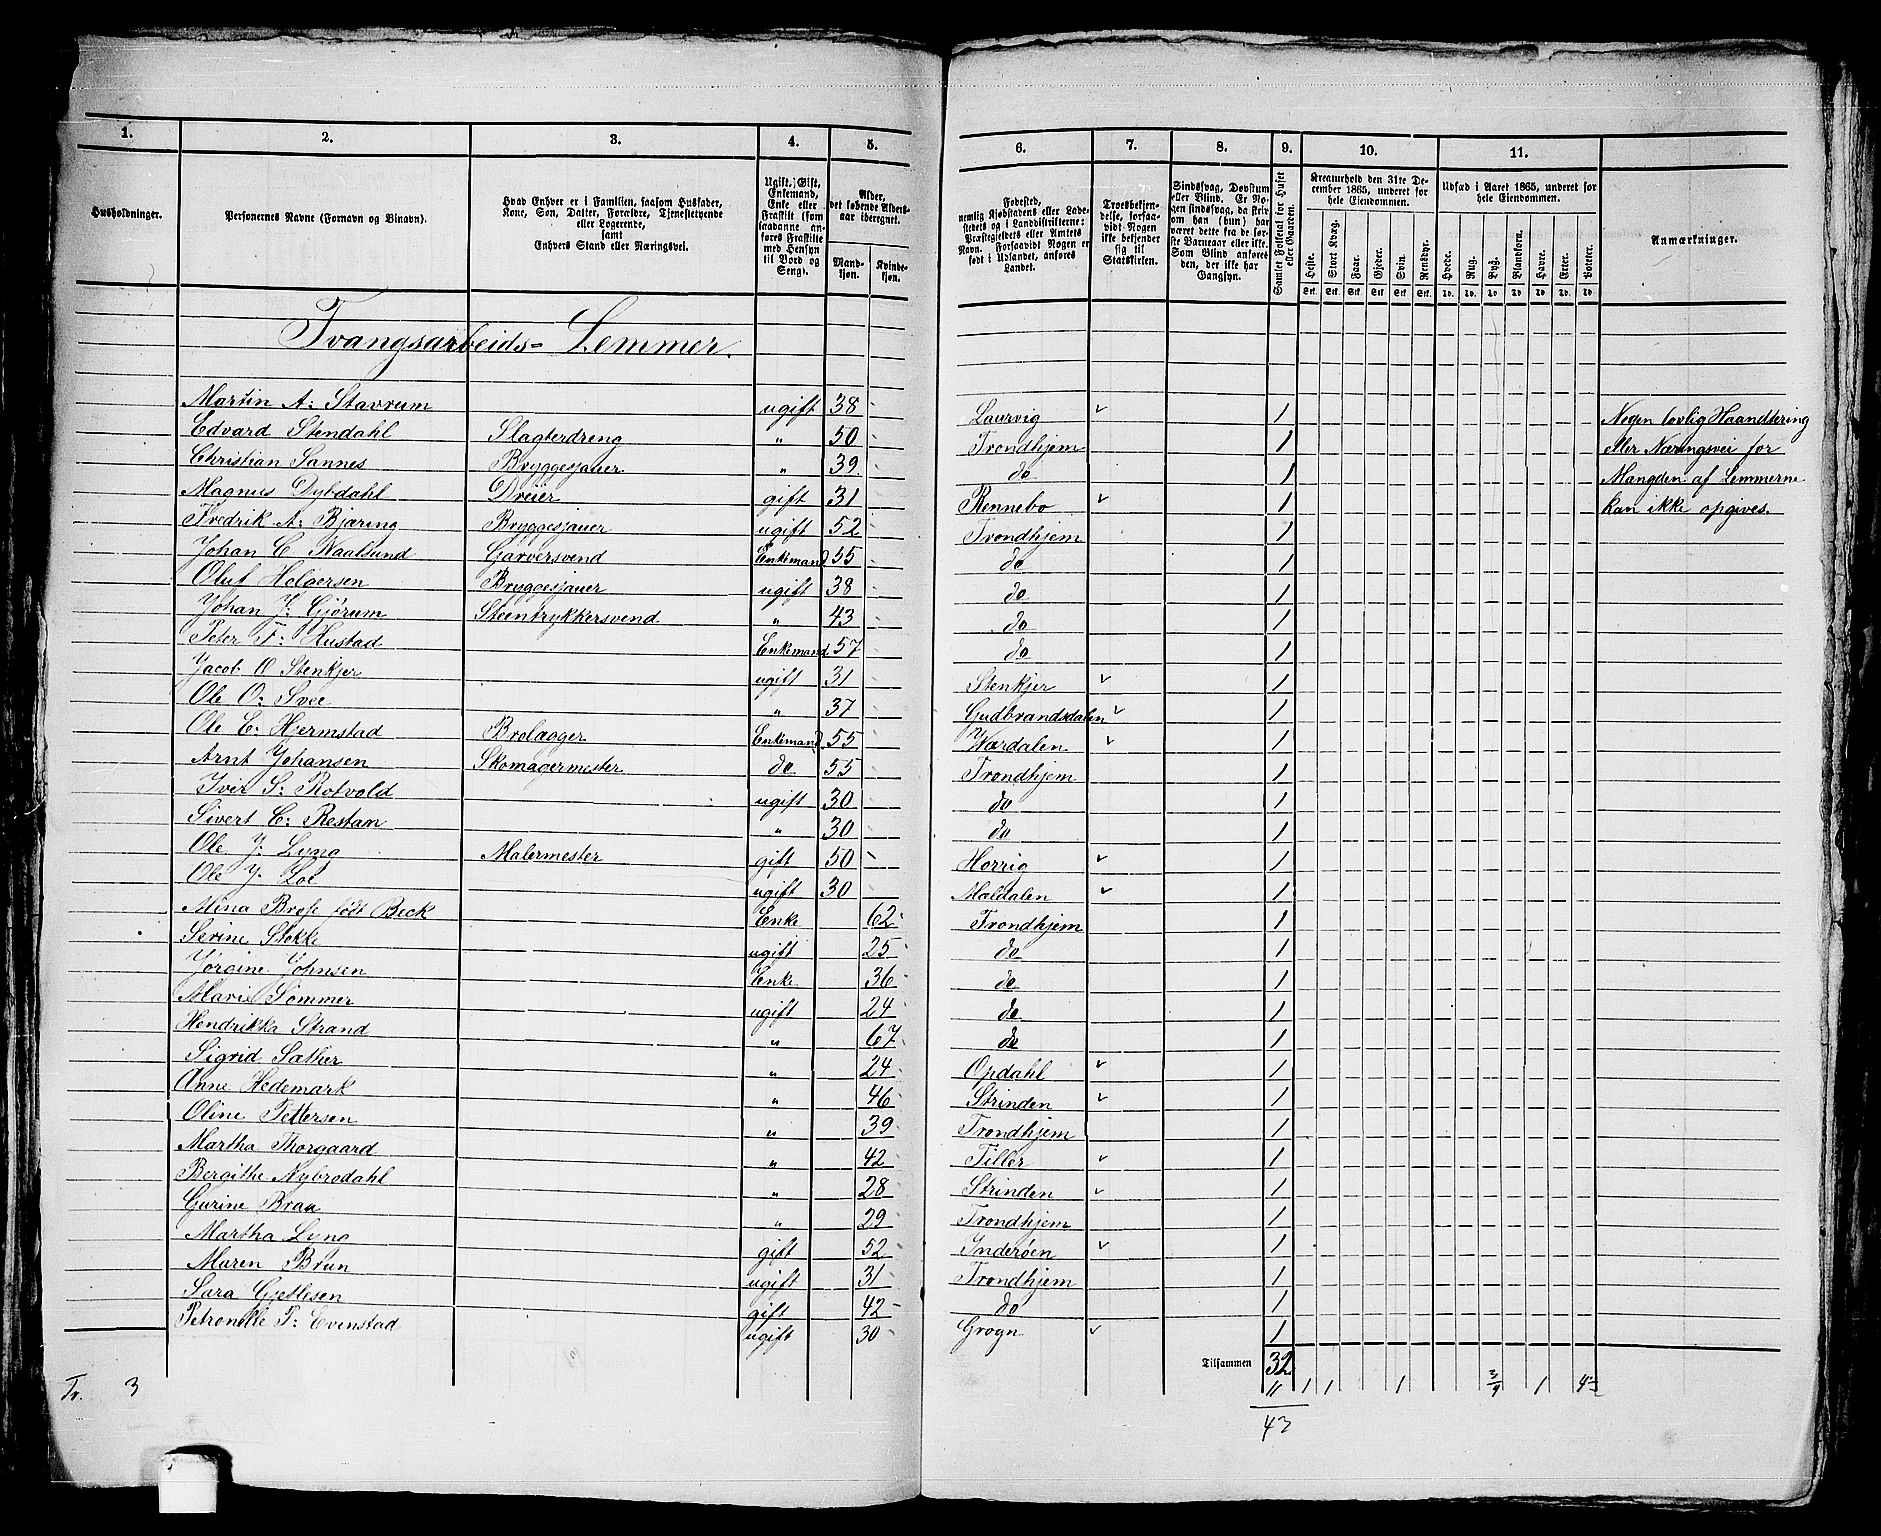 1. 2. 3. 4. 5. 6. 7. 8. 9. 10. 11.
Husholdninger.
Personernes Navne (Fornavn og Binavn).
Hvad Enhver er i Familien, saasom Husfader, Kone, Søn, Datter, Forældre, Tjenestetyende eller Logerende, samt Enhvers Stand eller Næringsvei.
Ugift, Gift, Enkemand, Enke eller Fraskilt (som saadanne anføres Fraskilte med Hensyn til Bord og Seng).
Alder, det løbende Aldersaar iberegnet.
Mandkjøn. Kvindekjøn.
Fødested, nemlig Kjøbstadens eller Ladestedets og i Landdistrikterne: Præstegjeldets eller Amtets Navn. Forsaavidt Nogen er født i Udlandet, anføres Landet.
Troesbekjendelse, forsaavidt Nogen ikke bekjender sig til Statskirken.
Sindssvag, Døvstum eller Blind. Er Nogen sindssvag, da skrives om han (hun) har været dette fra de første Barneaar eller ikke. Som Blind anføres den, der ikke har Gangsyn.
Samlet Folketal for Huset eller Gaarden.
Kreaturhold den 31te December 1865, underet for hele Eiendommen.
Heste. Stort Kvæg. Faar. Gjeder. Svin. Rensdyr.
Udsæd i Aaret 1865, underet for hele Eiendommen.
Hvede. Rug. Byg. Blandkorn. Havre. Erter. Poteter.
Anmærkninger.
Tvangsarbeids= Lemmer.
Martin A: Stavrum ugift 38 Laurvig 1 Nogen lovlig Haandtering
Edvard Stendahl Slagterdreng " 50 Trondhjem 1 eller Næringsvei for
Christian Sannes Bryggesjauer " 39 do 1 Mangden af Lemmerne
Magnus Dybdahl Dreier gift 31 Rennebo 1 kan ikke opgives.
Fredrik A: Bjæring Bryggesjauer ugift 52 Trondhjem 1
Johan C Naalsund Garversvend Enkemand 55 do 1
Oluf Holgersen Bryggesjauer ugift 38 do 1
Johan J: Gjørum Steentrykkersvend " 43 do 1
Peter F: Hustad Enkemand 57 do 1
Jacob O Stenkjer ugift 31 Stenkjer 1
Ole O: Svee " 37 Gudbrandsdalen 1
Ole E: Hjermstad Brolægger Enkemand 55 Værdalen 1
Arnt Johansen Skomagermester do 55 Trondhjem 1
Iver S: Rotvold ugift 30 do 1
Sivert C: Restan " 30 do 1
Ole J. Lyng Malermester gift 50 Horrig 1
Ole J. Loe ugift 30 Maldalen 1
Mina Brose født Beck Enke 62 Trondhjem 1
Serine Stokke ugift 25 do 1
Jørgine Johnsen Enke 36 do 1
Marie Sommer ugift 24 do 1
Hendrikka Strand " 67 do 1
Sigrid Sæther " 24 Opdahl 1
Anne Hedemark " 46 Strinden 1
Oline Pettersen " 39 Trondhjem 1
Martha Thorgaard " 42 Tiller 1
Bergithe Nybrodahl " 28 Strinden 1
Gurine Braa " 29 Trondhjem 1
Martha Lyng gift 52 Inderøen 1
Maren Brun ugift 31 Trondhjem 1
Sara Gjetlesen gift 42 do 1
Petronelle P: Evenstad ugift 30 Grogn 1
Tilsammen 32
Tr. 3 11 1 1 1 3/4 1 4
43